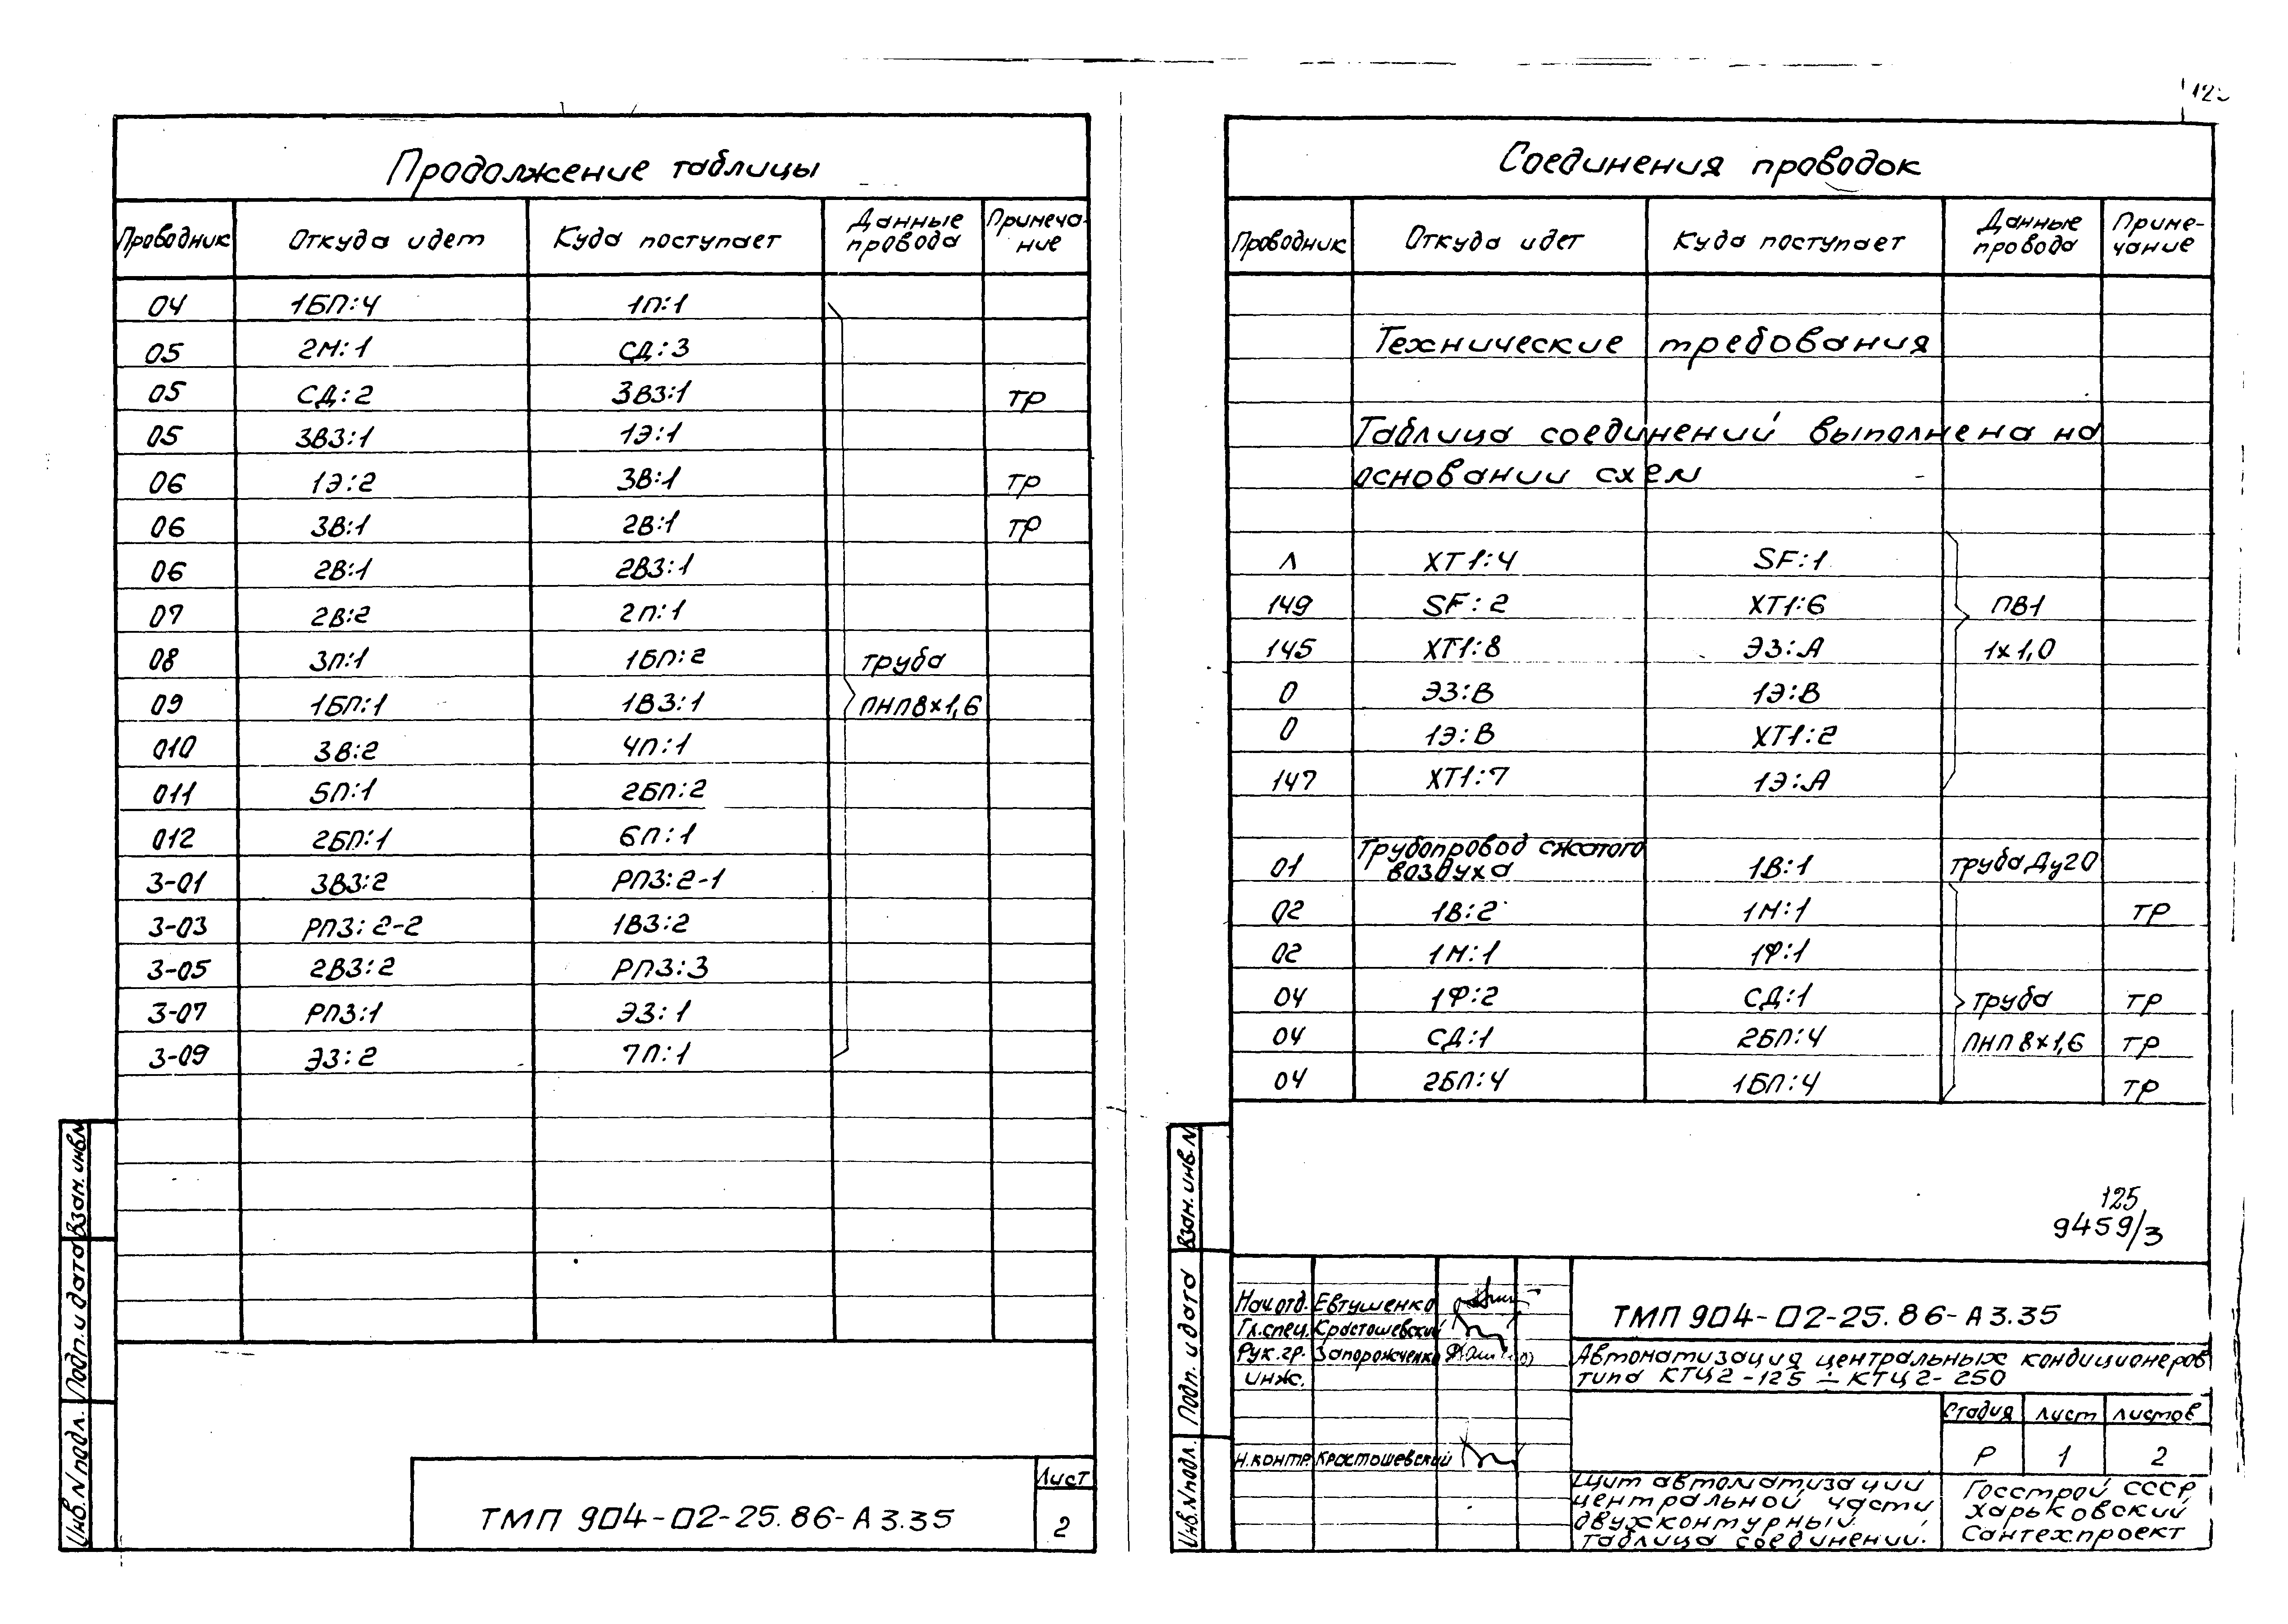 Продолжение таблицы
Проводник Откуда идет Куда поступает Данные провода Примеча-ние
04 1БП:4 1П:1
05 2М:1 СД:3
05 СД:2 3В3:1 ТР
05 3В3:1 1Э:1
06 1Э:2 3В:1 ТР
06 3В:1 2В:1 ТР
06 2В:1 2В3:1
07 2В:2 2П:1
08 3П:1 1БП:2 труба
09 1БП:1 1В3:1 ПНП8×1,6
010 3В:2 4П:1
011 5П:1 2БП:2
012 2БП:1 6П:1
3-01 3В3:2 РП3:2-1
3-03 РП3:2-2 1В3:2
3-05 2В3:2 РП3:3
3-07 РП3:1 Э3:1
3-09 Э3:2 7П:1
Взам.инв.N
Подп. и дата
Инв.N подл.
ТМП 904-02-25.86-А3.35
Лист
2
Соединения проводок
Проводник Откуда идет Куда поступает Данные провода Приме-чание
Технические требования
Таблица соединений выполнена на
основании схем
Л ХТ1:4 SF:1
149 SF:2 ХТ1:6 ПВ1
145 ХТ1:8 Э3:А 1×1,0
0 Э3:В 1Э:В
0 1Э:В ХТ1:2
147 ХТ1:7 1Э:А
01 Трубопровод сжатого воздуха 1В:1 труба Ду20
02 1В:2 1М:1 ТР
02 1М:1 1Ф:1
04 1Ф:2 СД:1 труба ТР
04 СД:1 2БП:4 ПНП8×1,6 ТР
04 2БП:4 1БП:4 ТР
125
9459/3
Взам.инв.N
Подп. и дата
Инв.N подл.
Нач.отд. Евтушенко
Гл.спец. Крастошевский
Рук.гр. Запорожченко
инж.
Н.контр. Крастошевский
ТМП 904-02-25.86-А3.35
Автоматизация центральных кондиционеров
типа КТЦ2-125 ÷ КТЦ2-250
Стадия Лист Листов
Р 1 2
Щит автоматизации
центральной части
двухконтурный.
Таблица соединений.
Госстрой СССР
Харьковский
Сантехпроект